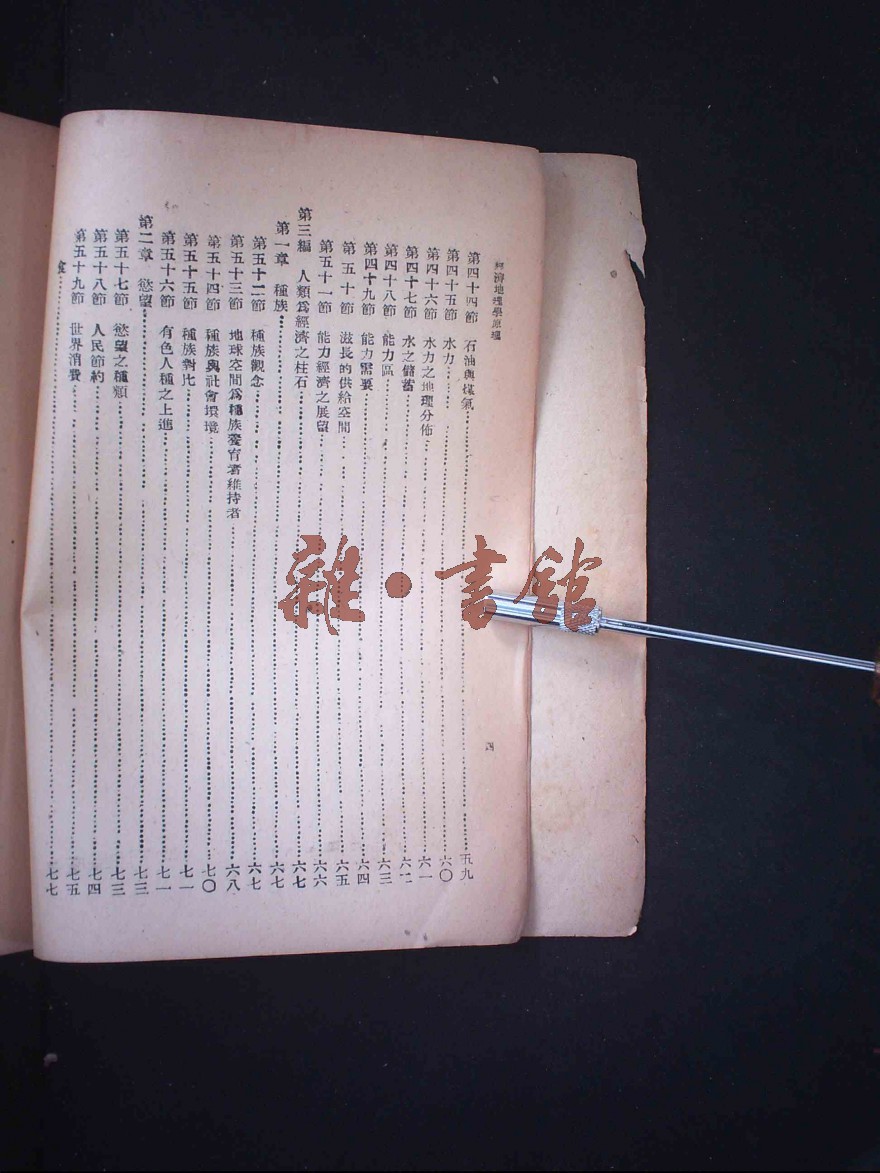 經濟地理學原理
四
第四十四節 石油與煤氣……五九
第四十五節 水力……六〇
第四十六節 水力之地理分佈……六一
第四十七節 水之儲蓄……六二
第四十八節 能力區……六三
第四十九節 能力需要……六四
第五十節 滋長的供給空間……六五
第五十一節 能力經濟之展望……六六
第三編 人類爲經濟之柱石……六七
第一章 種族……六七
第五十二節 種族觀念……六七
第五十三節 地球空間爲種族養育者維持者……六八
第五十四節 種族與社會環境……七〇
第五十五節 種族對比……七一
第五十六節 有色人種之上進……七一
第二章 慾望……七三
第五十七節 慾望之種類……七三
第五十八節 人民節約……七四
第五十九節 世界消費……七五
食……七七
雜·書館